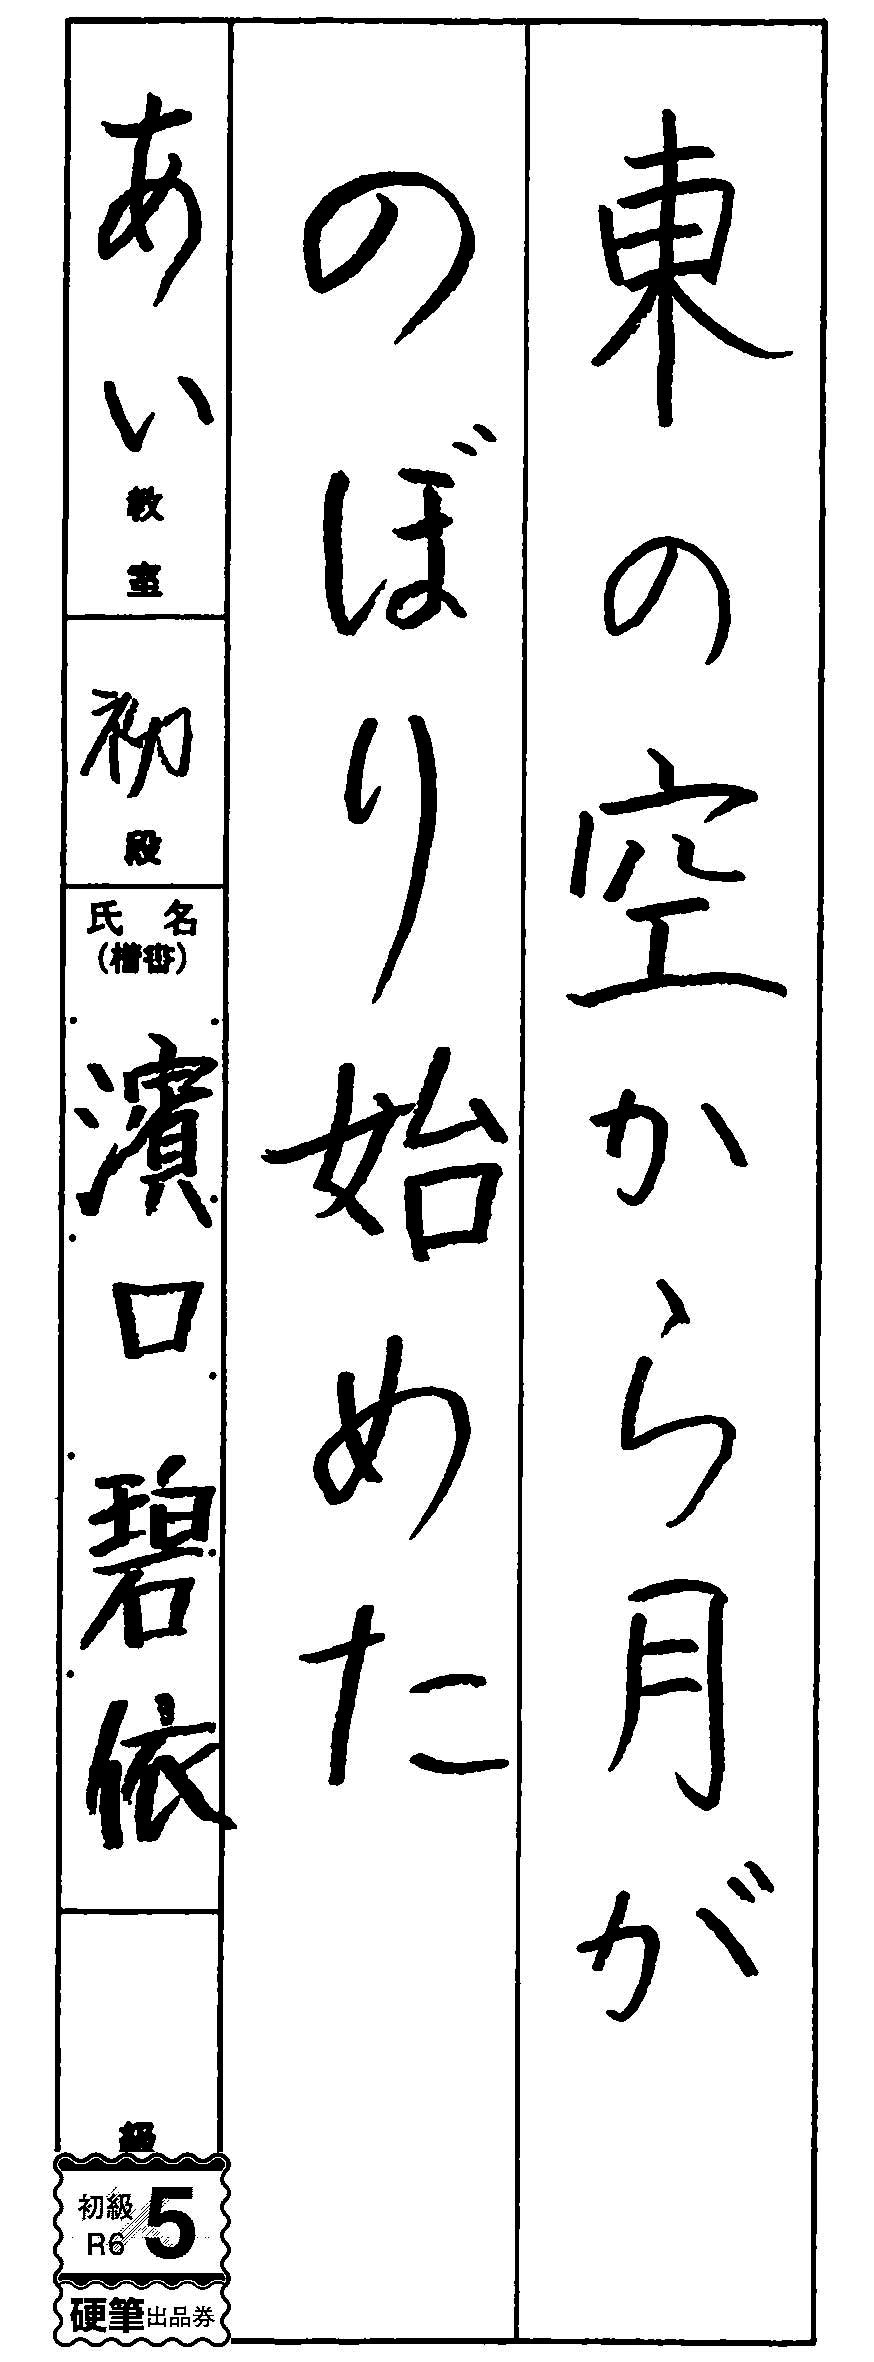 東の空から月が
のぼり始めた
あい教室
初段
氏名
(楷書)
濱口碧依
級
初級
R6
5
硬筆出品券